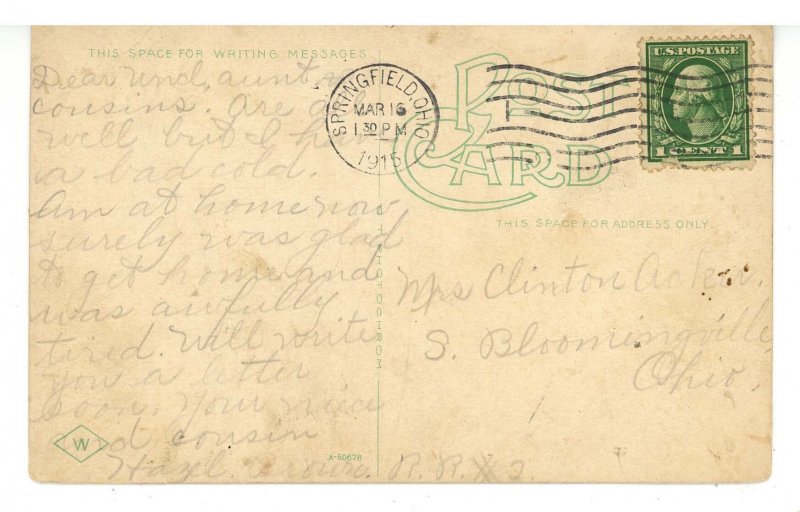 THIS SPACE FOR WRITING MESSAGES
Dear Uncl, aunt &
cousins. Are all
well but I have
a bad cold.
Am at home now
surely was glad
to get home and
was awfully
tired. Will write
you a letter
soon. Your niece
and cousin
Hazel R.R. #2
W
A-50678
PHOTOCHROM
SPRINGFIELD, OHIO
MAR 16
1 30 PM
1915
POST
CARD
U.S. POSTAGE
1 CENT 1
THIS SPACE FOR ADDRESS ONLY.
Mrs Clinton
S. Bloomingville
Ohio.